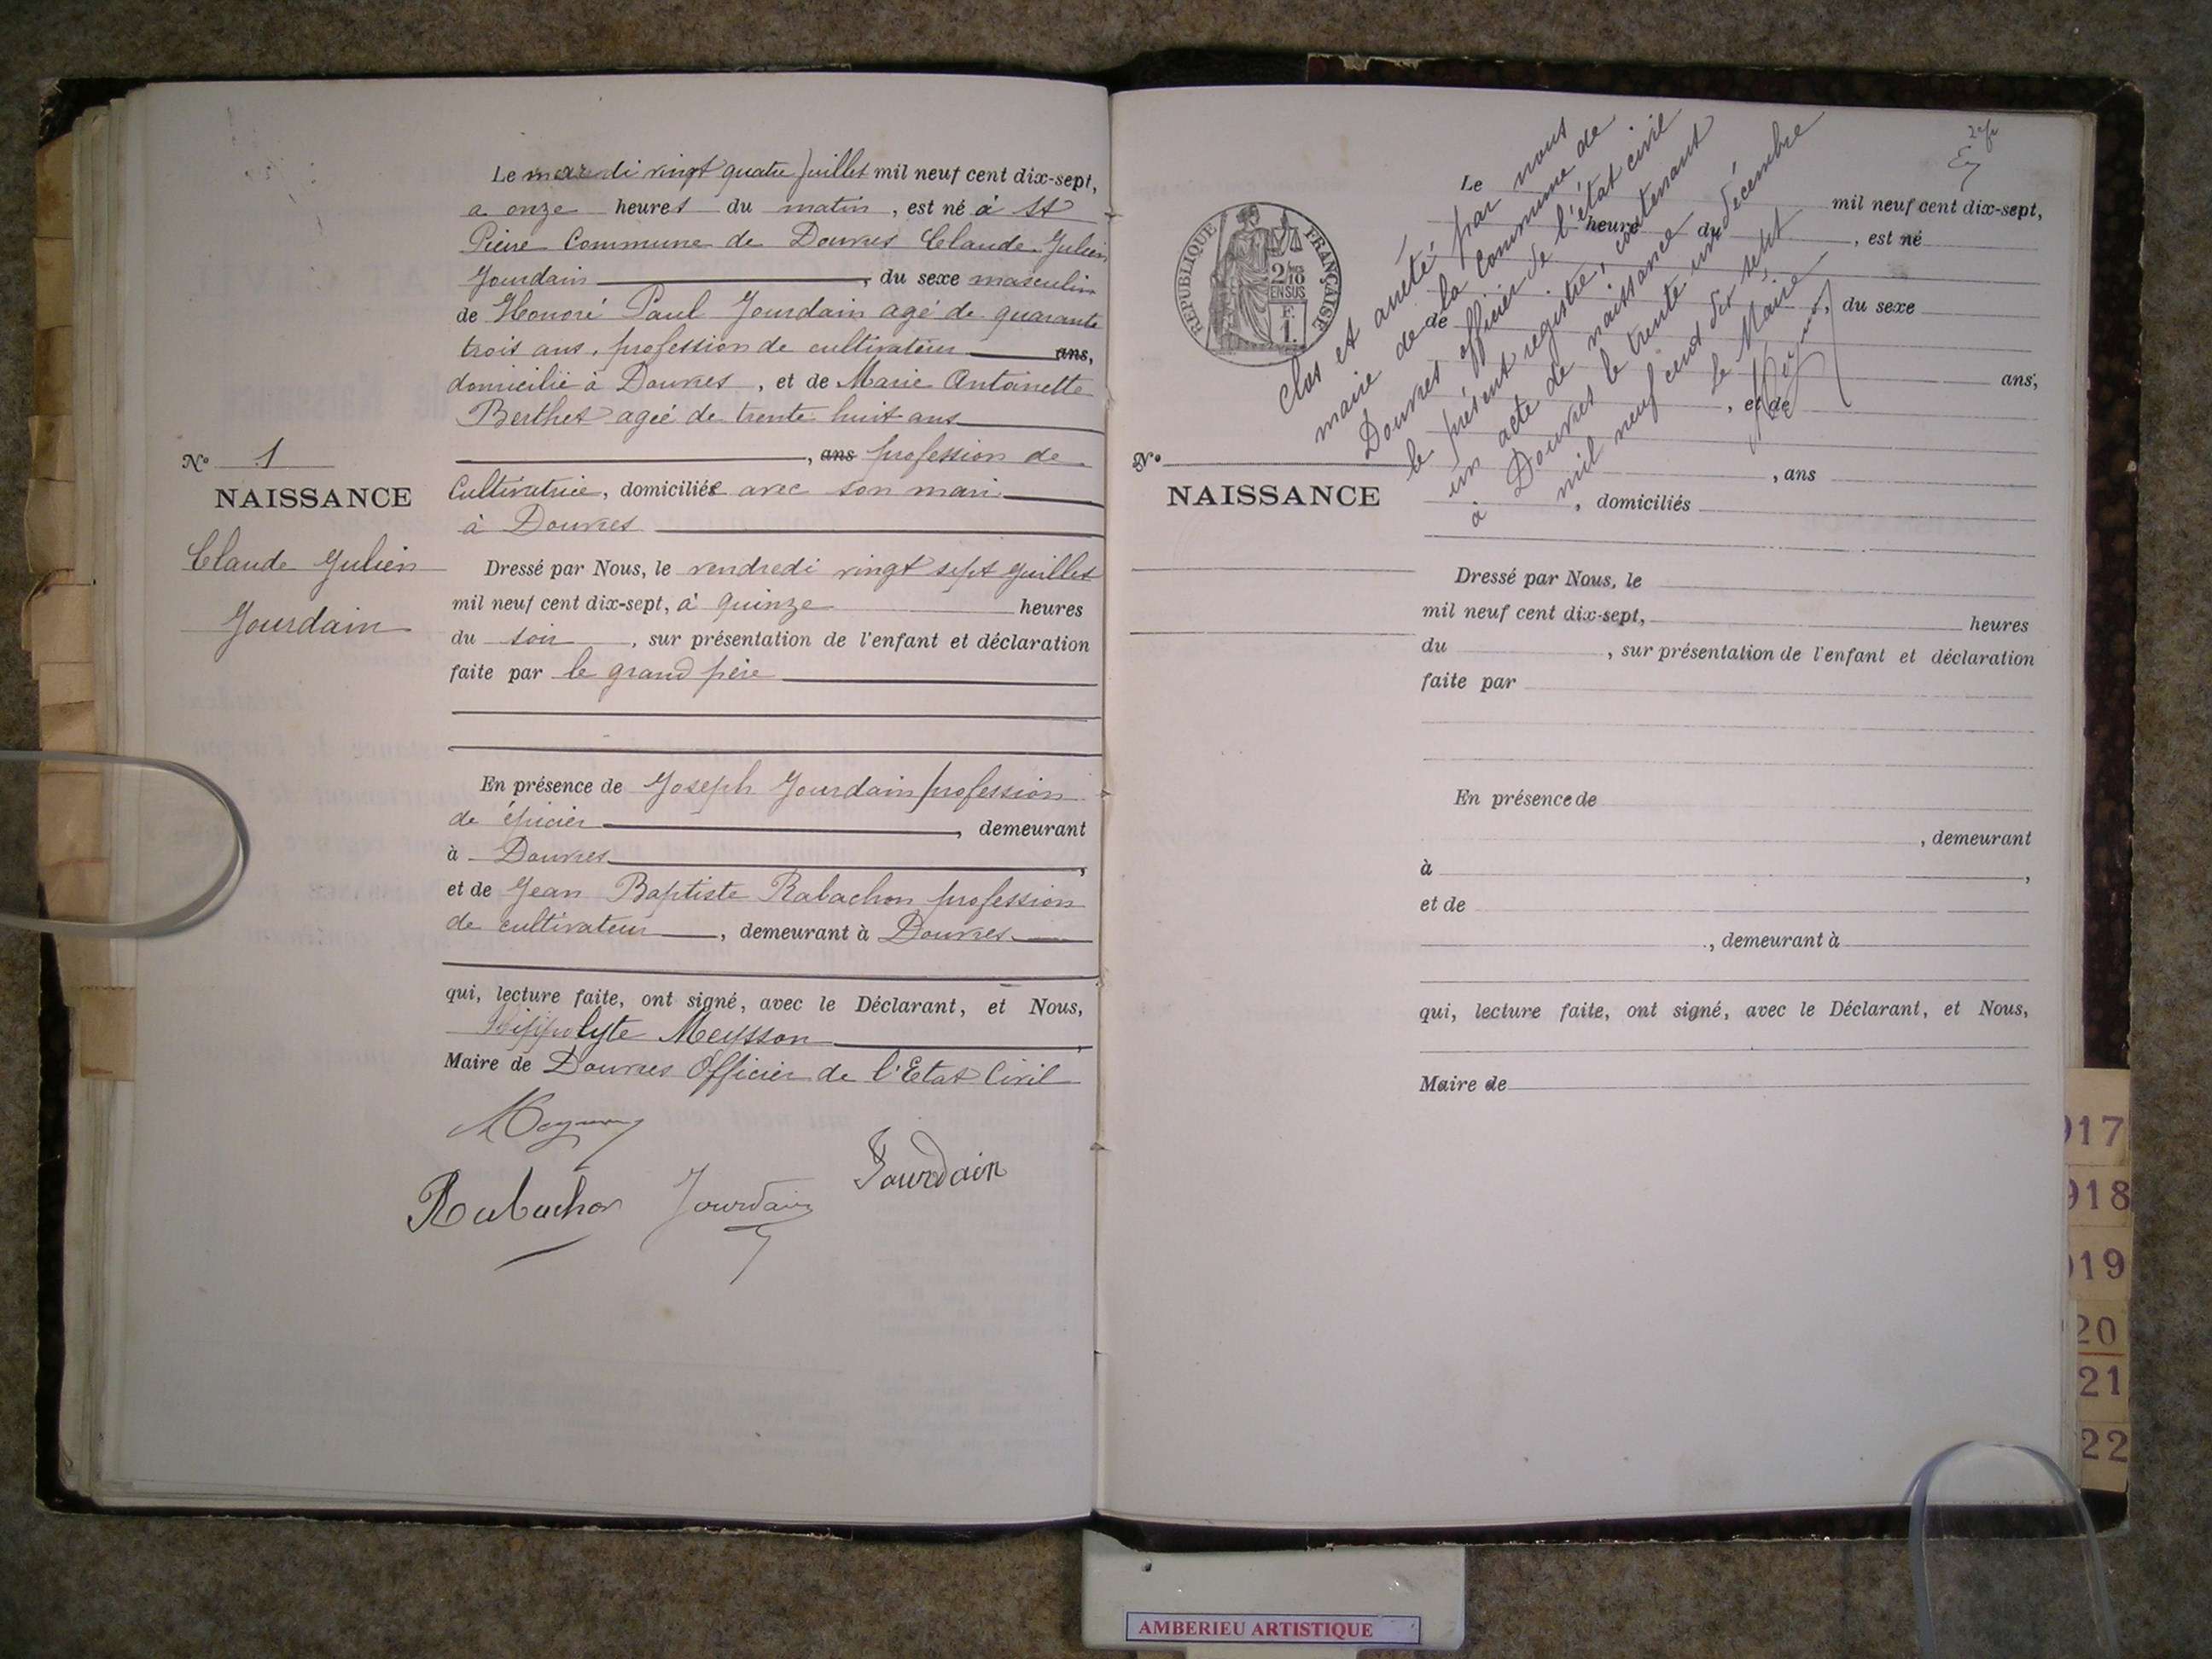 Le mardi vingt quatre Juillet mil neuf cent dix-sept,
a onze heures du matin, est né à St
Pierre Commune de Douvres Claude Julien
Jourdain, du sexe masculin
de Honoré Paul Jourdain agé de quarante
trois ans, profession de cultivateur ans,
domicilié à Douvres, et de Marie Antoinette
Berthet agée de trente huit ans
, ans profession de
Cultivatrice, domiciliés avec son mari
à Douvres
No 1
NAISSANCE
Claude Julien
Jourdain
Dressé par Nous, le vendredi vingt sept Juillet
mil neuf cent dix-sept, à quinze heures
du soir, sur présentation de l'enfant et déclaration
faite par le grand père
En présence de Joseph Jourdain profession
de épicier, demeurant
à Douvres,
et de Jean Baptiste Rabachon profession
de cultivateur, demeurant à Douvres
qui, lecture faite, ont signé, avec le Déclarant, et Nous,
Hippolyte Meysson,
Maire de Douvres Officier de l'Etat Civil
Rabachon Jourdain Jourdain
RÉPUBLIQUE FRANÇAISE
2/10
EN SUS
F.
1.
Le mil neuf cent dix-sept,
heure du, est né
, du sexe
de
ans,
, et de
, ans
, domiciliés
Clos et arrêté par nous
maire de la Commune de
Douvres officier de l'état civil
le présent registre, contenant
un acte de naissance
à Douvres le trente un décembre
mil neuf cent dix sept
Le Maire
No
NAISSANCE
Dressé par Nous, le
mil neuf cent dix-sept, heures
du, sur présentation de l'enfant et déclaration
faite par
En présence de
, demeurant
à,
et de
, demeurant à
qui, lecture faite, ont signé, avec le Déclarant, et Nous,
Maire de
917
918
919
20
21
22
AMBERIEU ARTISTIQUE